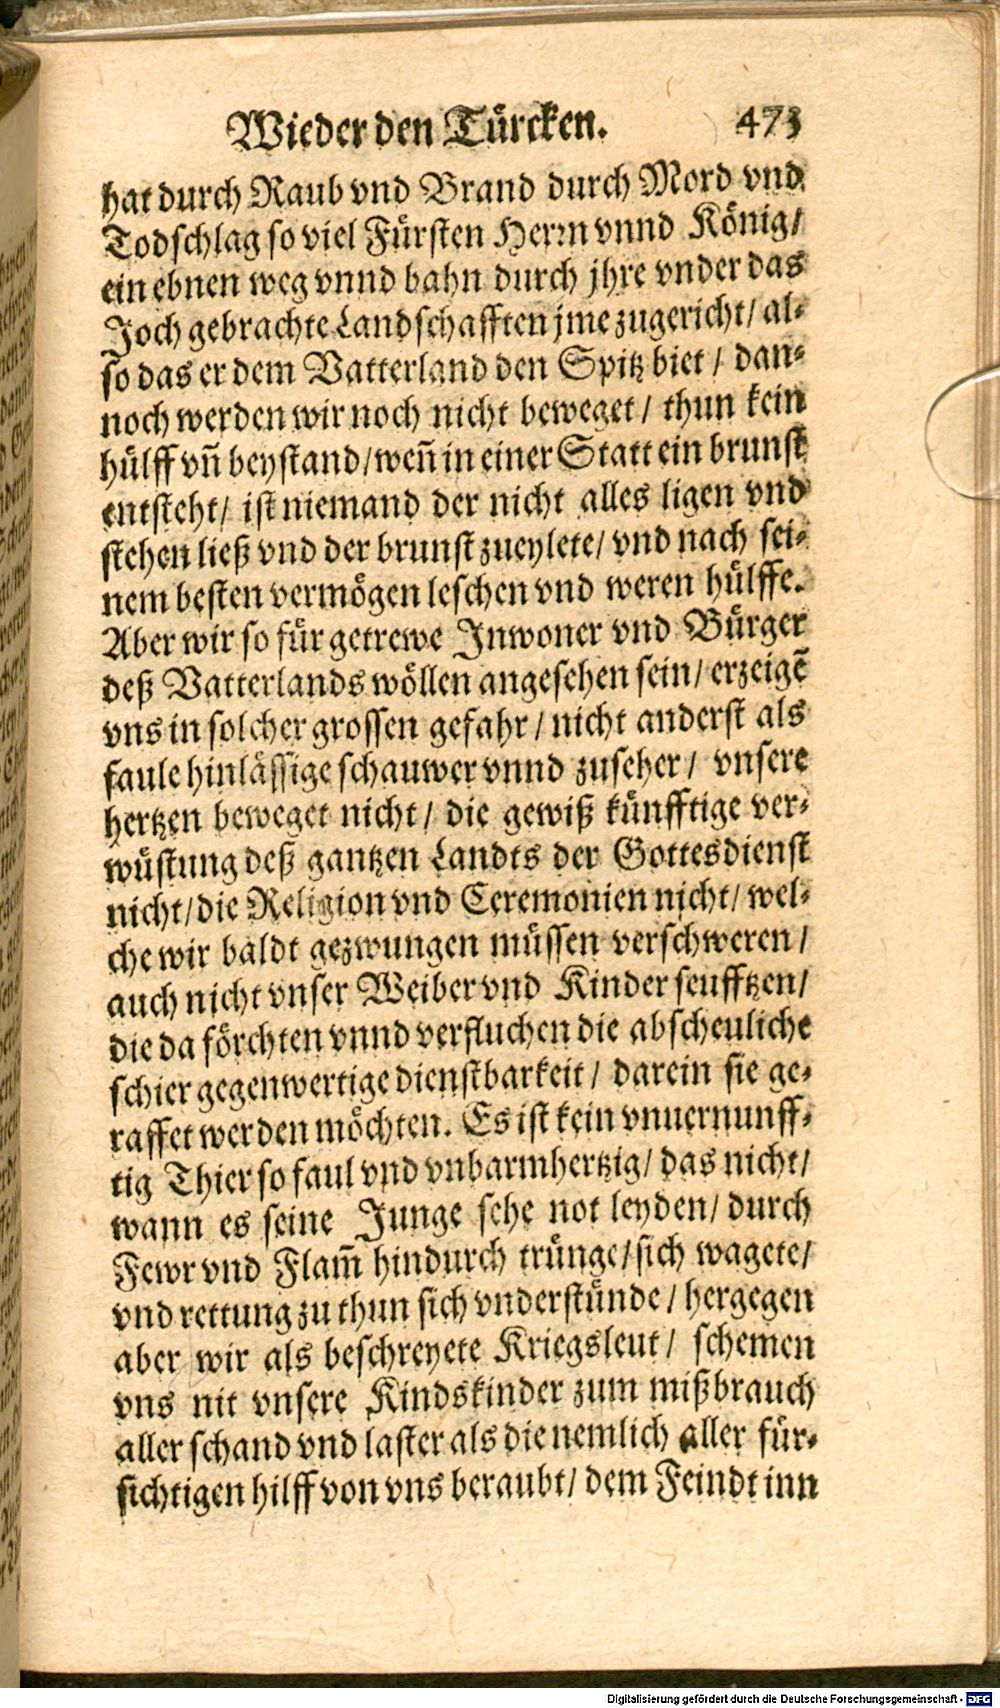 Wieder den Türcken. 473
hat durch Raub vnd Brand durch Mord vnd
Todschlag so viel Fürsten Herrn vnnd König/
ein ebnen weg vnnd bahn durch jhre vnder das
Joch gebrachte Landschafften jme zugericht/ al-
so das er dem Vatterland den Spitz biet / dan-
noch werden wir noch nicht beweget / thun kein
hülff vn̄ beystand/wen̄ in einer Statt ein brunst
entsteht/ ist niemand der nicht alles ligen vnd
stehen ließ vnd der brunst zueylete/ vnd nach sei-
nem besten vermögen leschen vnd weren hülffe.
Aber wir so für getrewe Inwoner vnd Bürger
deß Vatterlands wöllen angesehen sein/ erzeigē
vns in solcher grossen gefahr / nicht anderst als
faule hinlässige schauwer vnnd zuseher / vnsere
hertzen beweget nicht / die gewiß künfftige ver-
wüstung deß gantzen Landts der Gottesdienst
nicht/die Religion vnd Ceremonien nicht/ wel-
che wir baldt gezwungen müssen verschweren /
auch nicht vnser Weiber vnd Kinder seufftzen/
die da förchten vnnd verfluchen die abscheuliche
schier gegenwertige dienstbarkeit / darein sie ge-
raffet werden möchten. Es ist kein vnuernunff-
tig Thier so faul vnd vnbarmhertzig/ das nicht/
wann es seine Junge sehe not leyden/ durch
Fewr vnd Flam̄ hindurch trünge/sich wagete/
vnd rettung zu thun sich vnderstünde / hergegen
aber wir als beschreyete Kriegsleut / schemen
vns nit vnsere Kindskinder zum mißbrauch
aller schand vnd laster als die nemlich aller für-
sichtigen hilff von vns beraubt/ dem Feindt inn
Digitalisierung gefördert durch die Deutsche Forschungsgemeinschaft - DFG